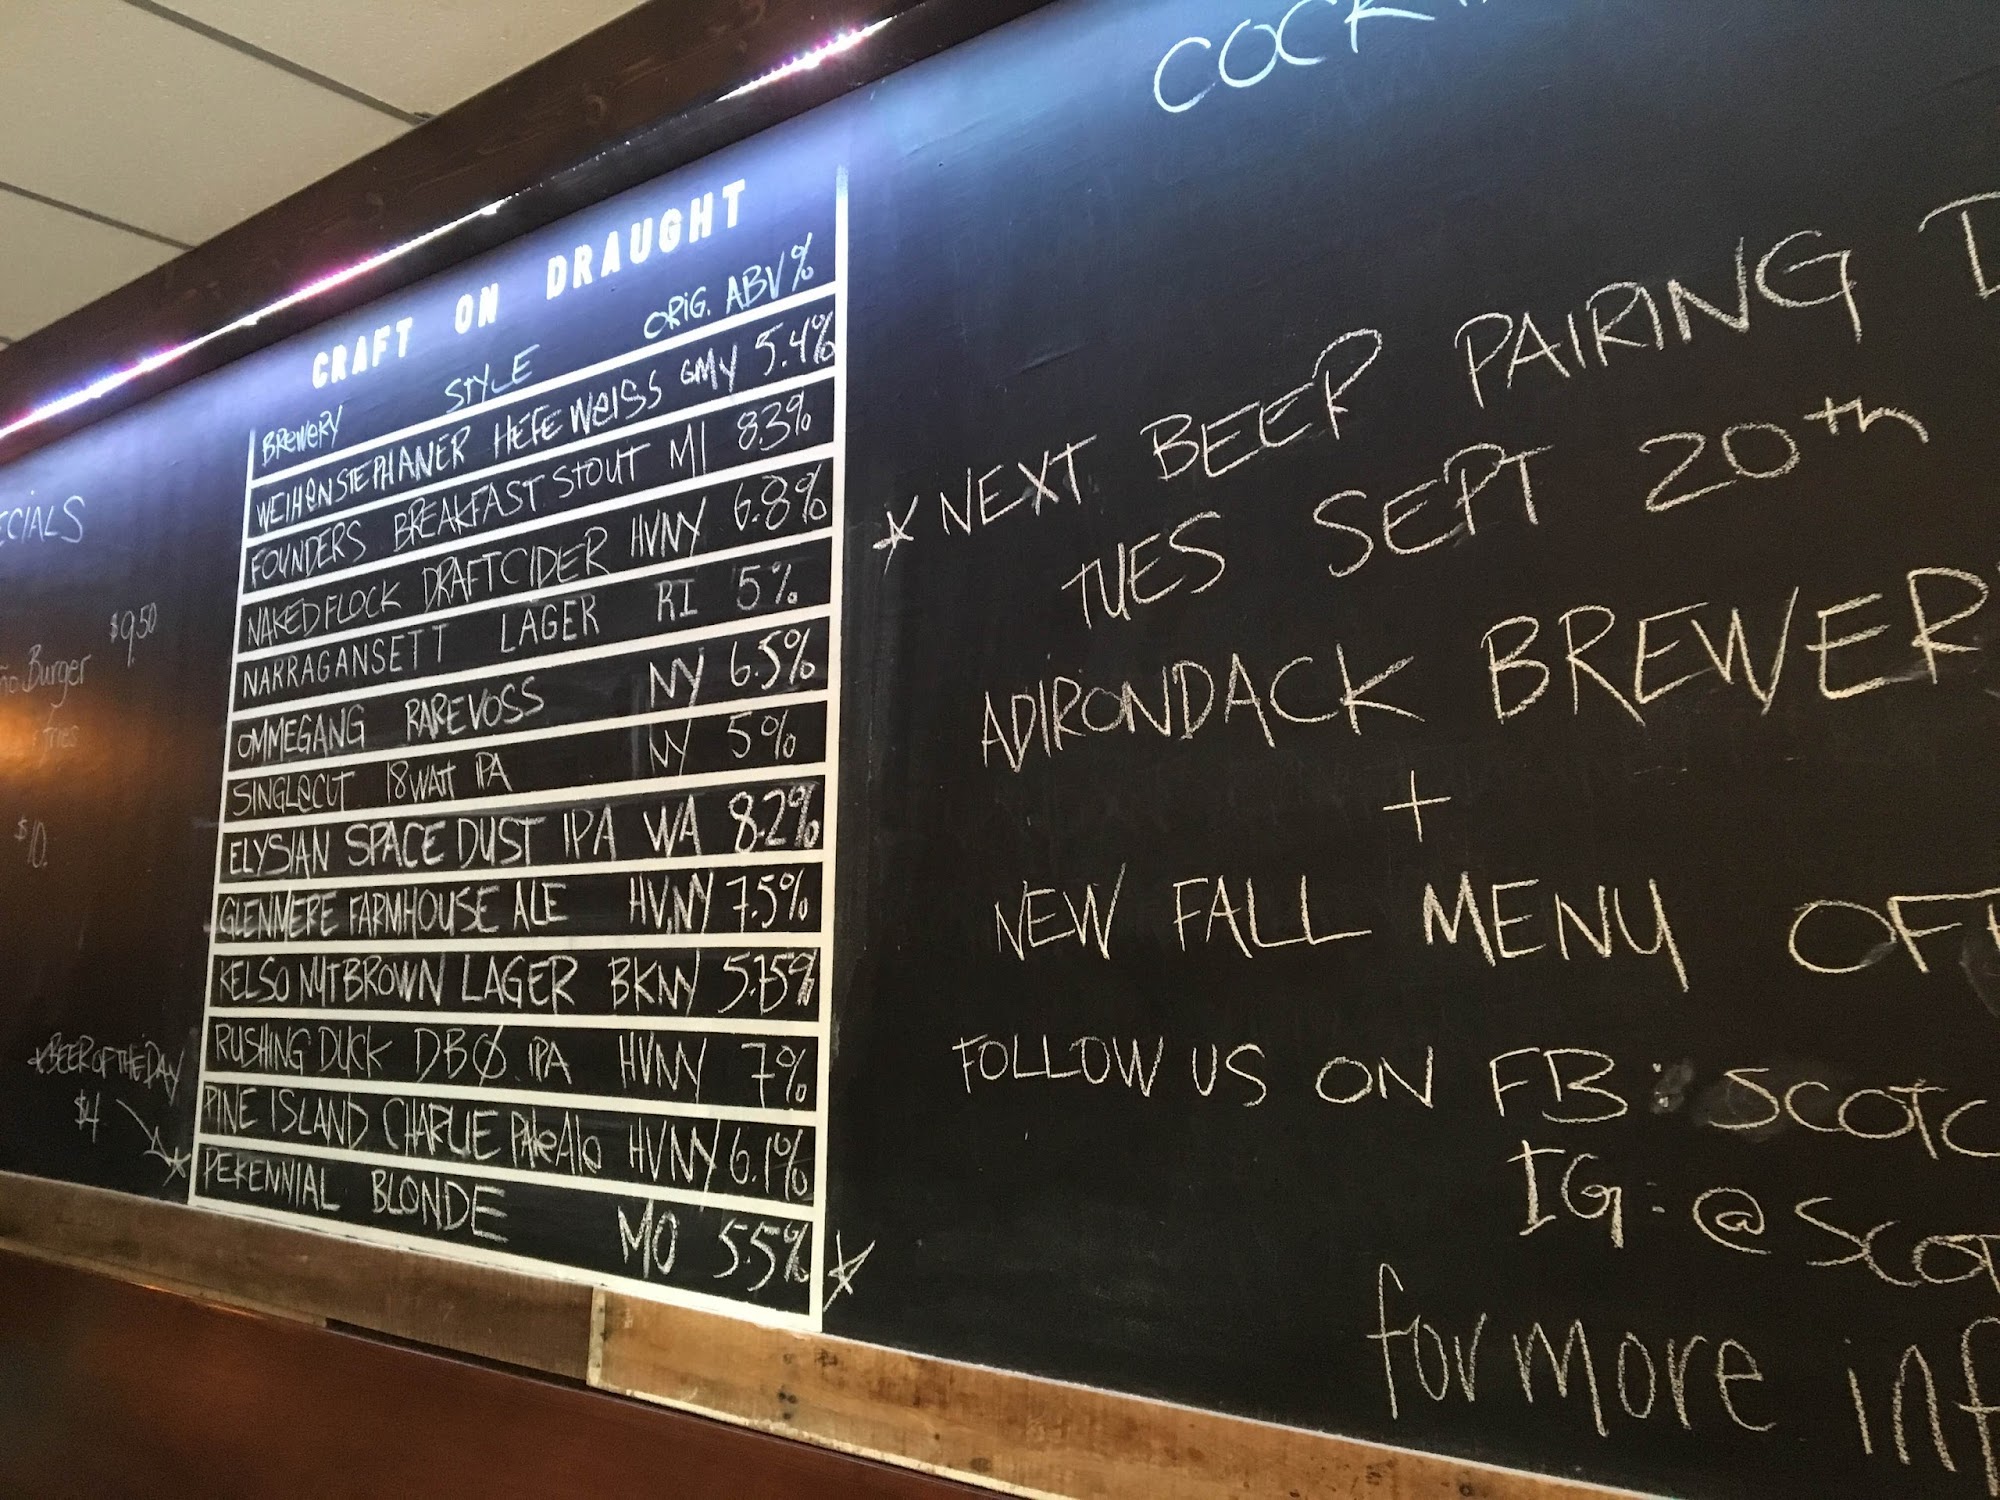 ECIALS
$9.50
Burger
fries
$10.
BEER OF THE DAY
$4
CRAFT ON DRAUGHT
BREWERY STYLE ORIG. ABV%
WEIHENSTEPHANER HEFEWEISS GMY 5.4%
FOUNDERS BREAKFAST STOUT MI 8.3%
NAKED FLOCK DRAFT CIDER HVNY 6.8%
NARRAGANSETT LAGER RI 5%
OMMEGANG RAREVOSS NY 6.5%
SINGLECUT 18WATT IPA NY 5%
ELYSIAN SPACE DUST IPA WA 8.2%
GLENMERE FARMHOUSE ALE HV,NY 7.5%
KELSO NUTBROWN LAGER BKNY 5.75%
RUSHING DUCK DBØ. IPA HVNY 7%
PINE ISLAND CHARLIE PALE ALE HVNY 6.1%
PERENNIAL BLONDE MO 5.5%
COCK
NEXT BEER PAIRING D
TUES SEPT 20th
ADIRONDACK BREWER
+
NEW FALL MENU OFF
FOLLOW US ON FB: SCOTC
IG: @SCOT
for more inf